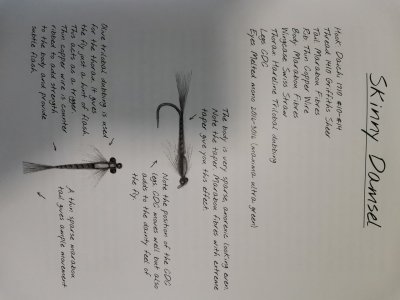 Skinny Damsel
Hook: Daiichi 1710 #10-#14
Thread: 14/0 Griffiths Sheer
Tail: Marabou Fibres
Rib: Thin Copper Wire
Body: Marabou Fibres
Wingcase: Swiss Straw
Thorax: Hareline Trilobal dubbing
Legs: CDC
Eyes: Melted mono 20lb-30lb (maxima ultra green)
The body is very sparse, anorexic looking even.
Note the taper. Marabou fibres with extreme
taper give you this effect.
Note the position of the CDC
legs. CDC moves well but also
adds to the dainty feel of
the fly.
Olive trilobal dubbing is used
for the thorax. It gives
the fly just a hint of flash.
This acts as a trigger.
Thin copper wire is counter
ribbed to add strength
to the body and provide
subtle flash.
A thin sparse marabou
tail gives ample movement